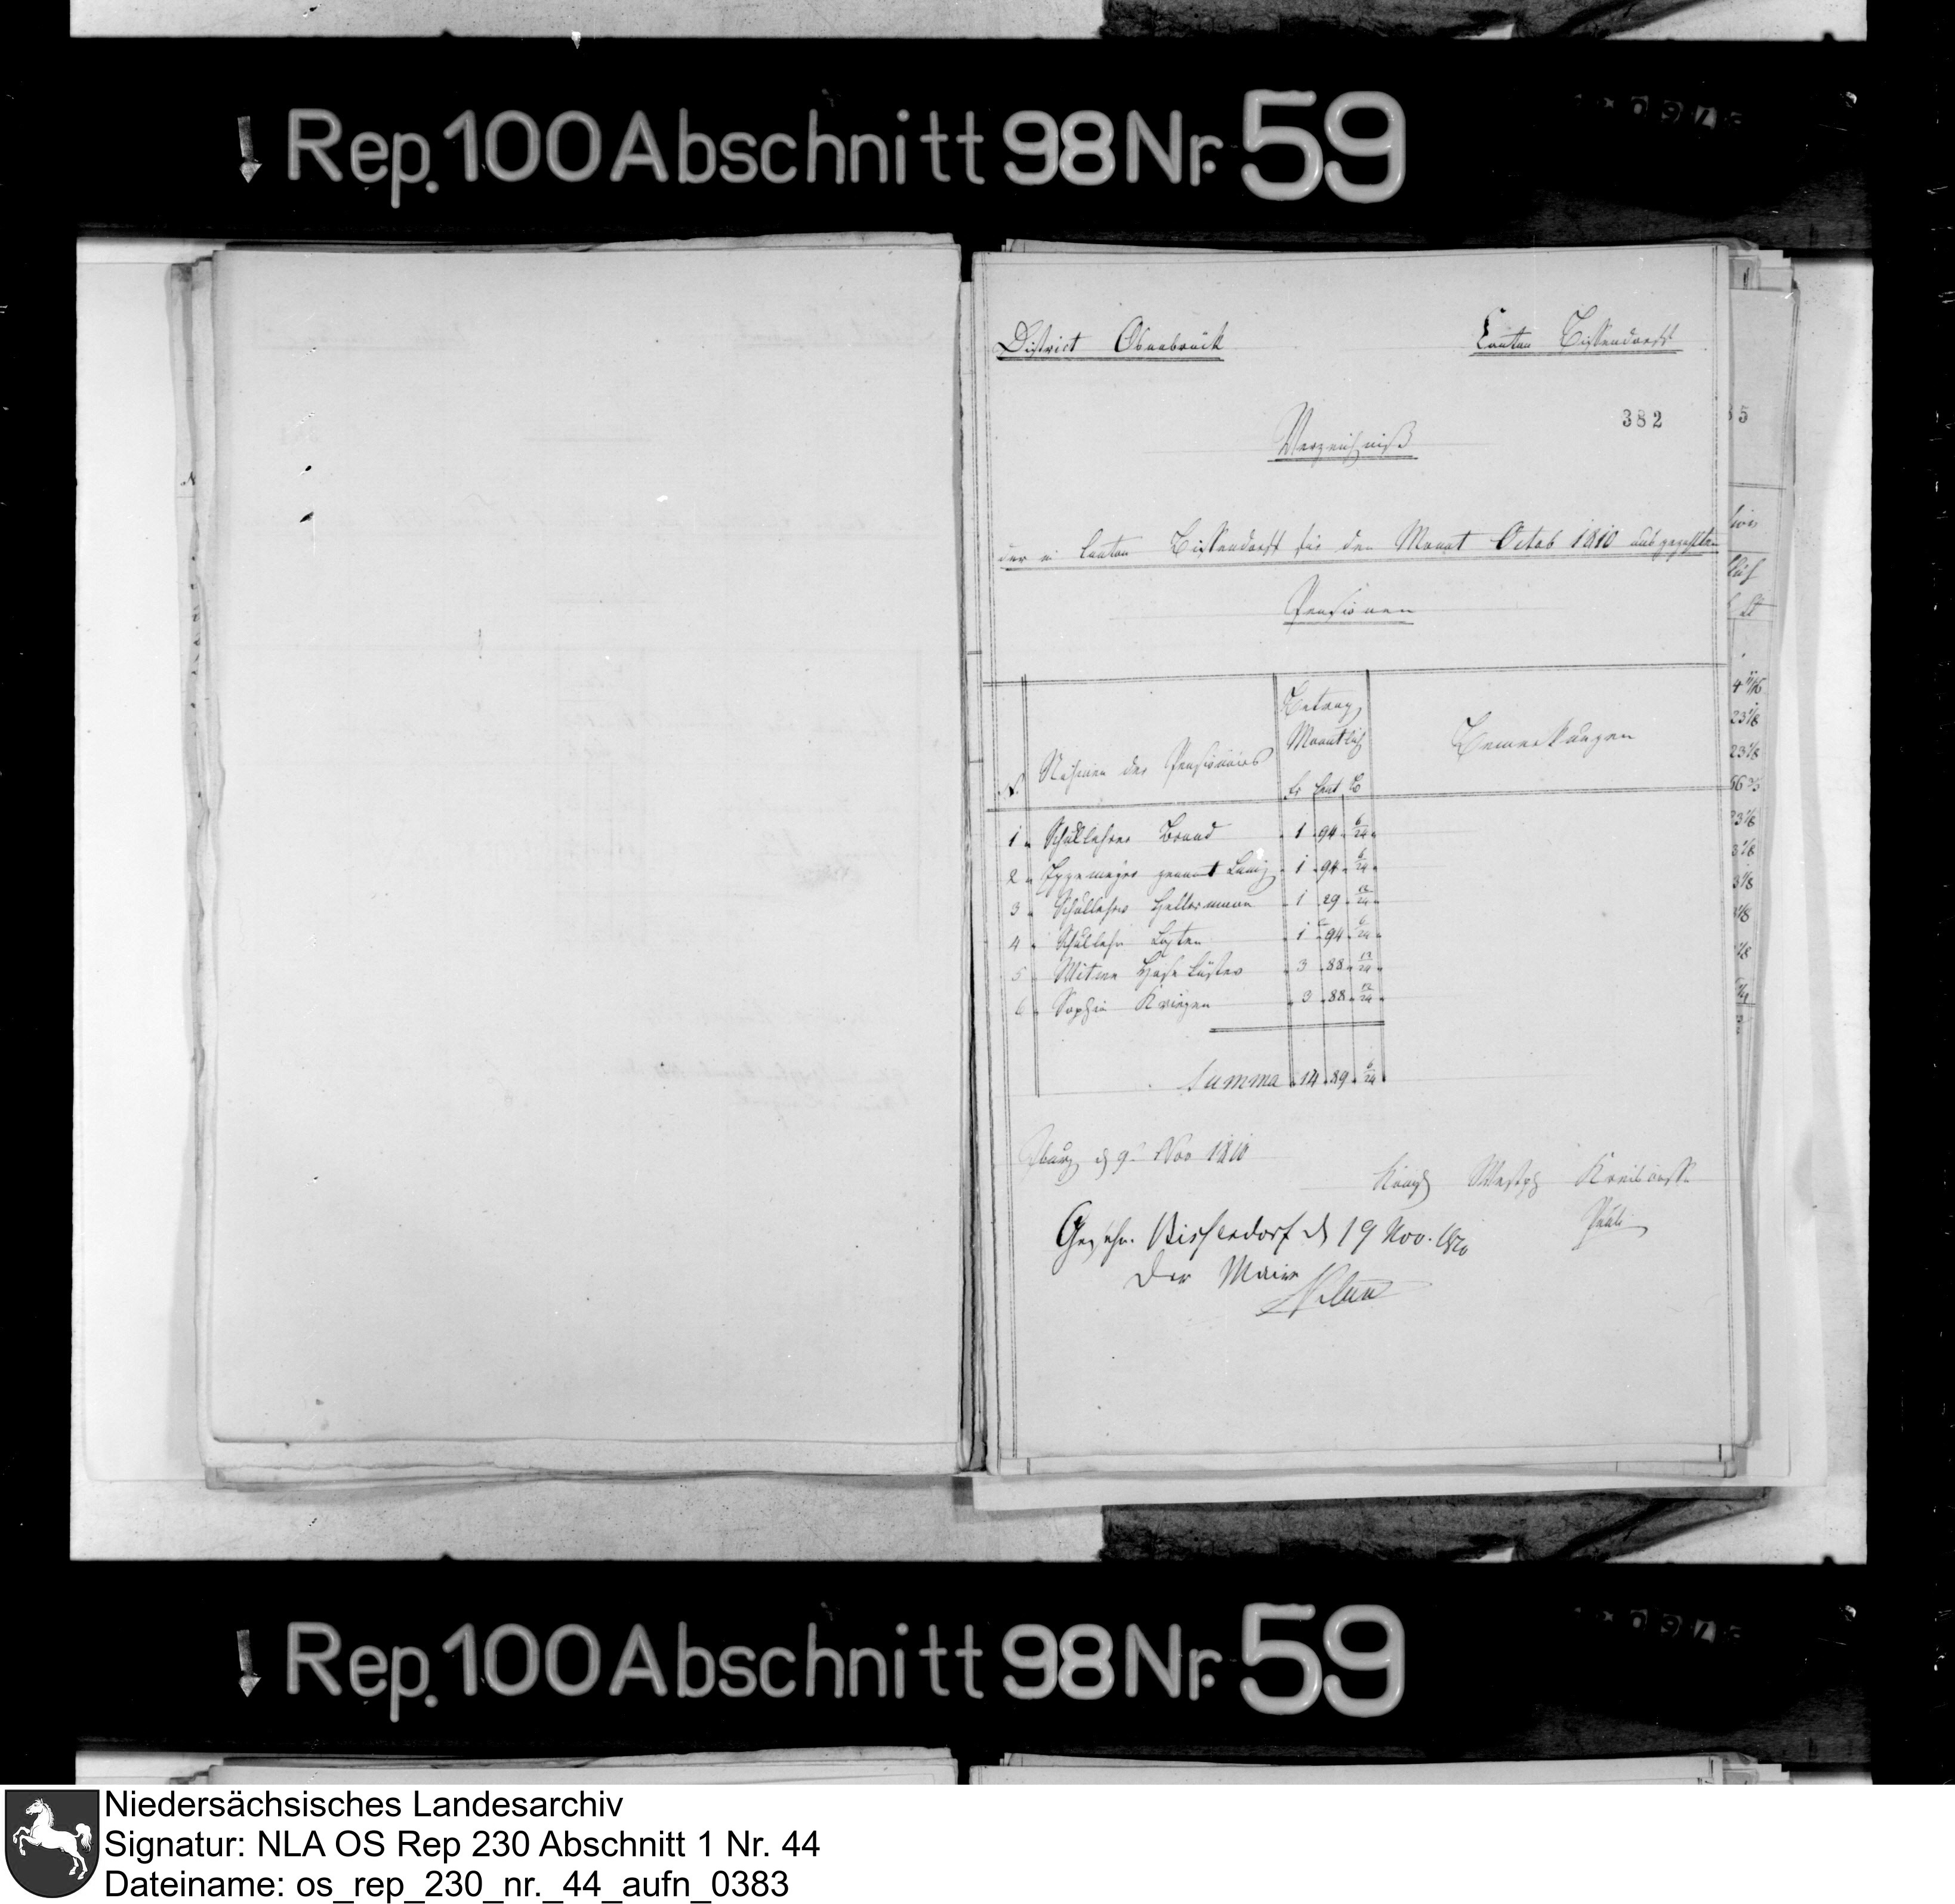 Rep. 100 Abschnitt 98 Nr. 59
District Osnabrück
Canton Bissendorff
382
Verzeichniß
der im Canton Bissendorff für den Monat Octob 1810 ausgezahlten
Pensionen
N. Nahmen der Pensionairs Betrag Monatlich Bemerkungen
fr Cent
1 Schullehrer Brand 1 94 6/24
2 genannt 1 94 6/24
3 Schullehrer Hellermann 1 29 12/24
4 Schullehr 1 94 6/24
5 Witwe 3 88 12/24
6 Sophia 3 88 12/24
Summa 14 89 6/24
Iburg d 9 Nov 1810
Königl Westph
Gesehn. Bissendorf d 19 Nov. 1810
Der Maire
Rep. 100 Abschnitt 98 Nr. 59
Niedersächsisches Landesarchiv
Signatur: NLA OS Rep 230 Abschnitt 1 Nr. 44
Dateiname: os_rep_230_nr._44_aufn_0383